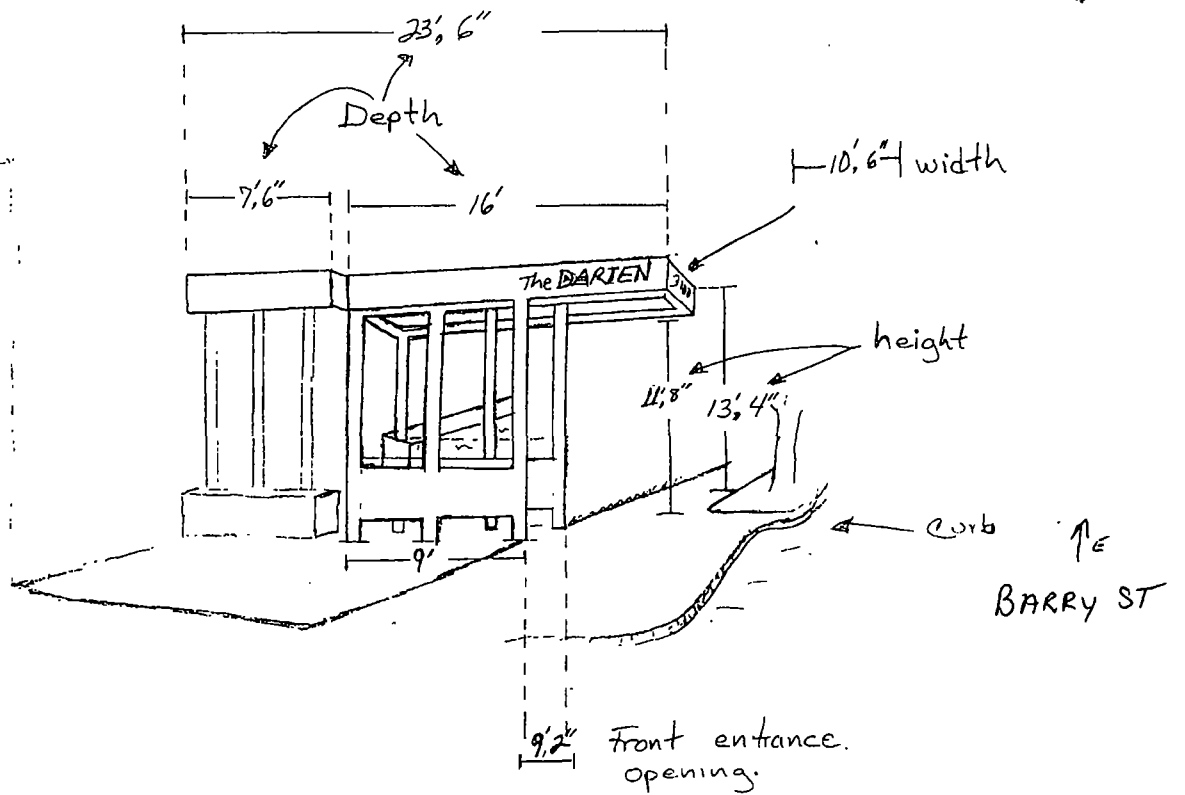 23', 6"
Depth
7',6"
16'
10', 6" width
The DARIEN
340
height
11', 8"
13', 4"
curb
↑E
BARRY ST
9'
9',2" Front entrance.
opening.